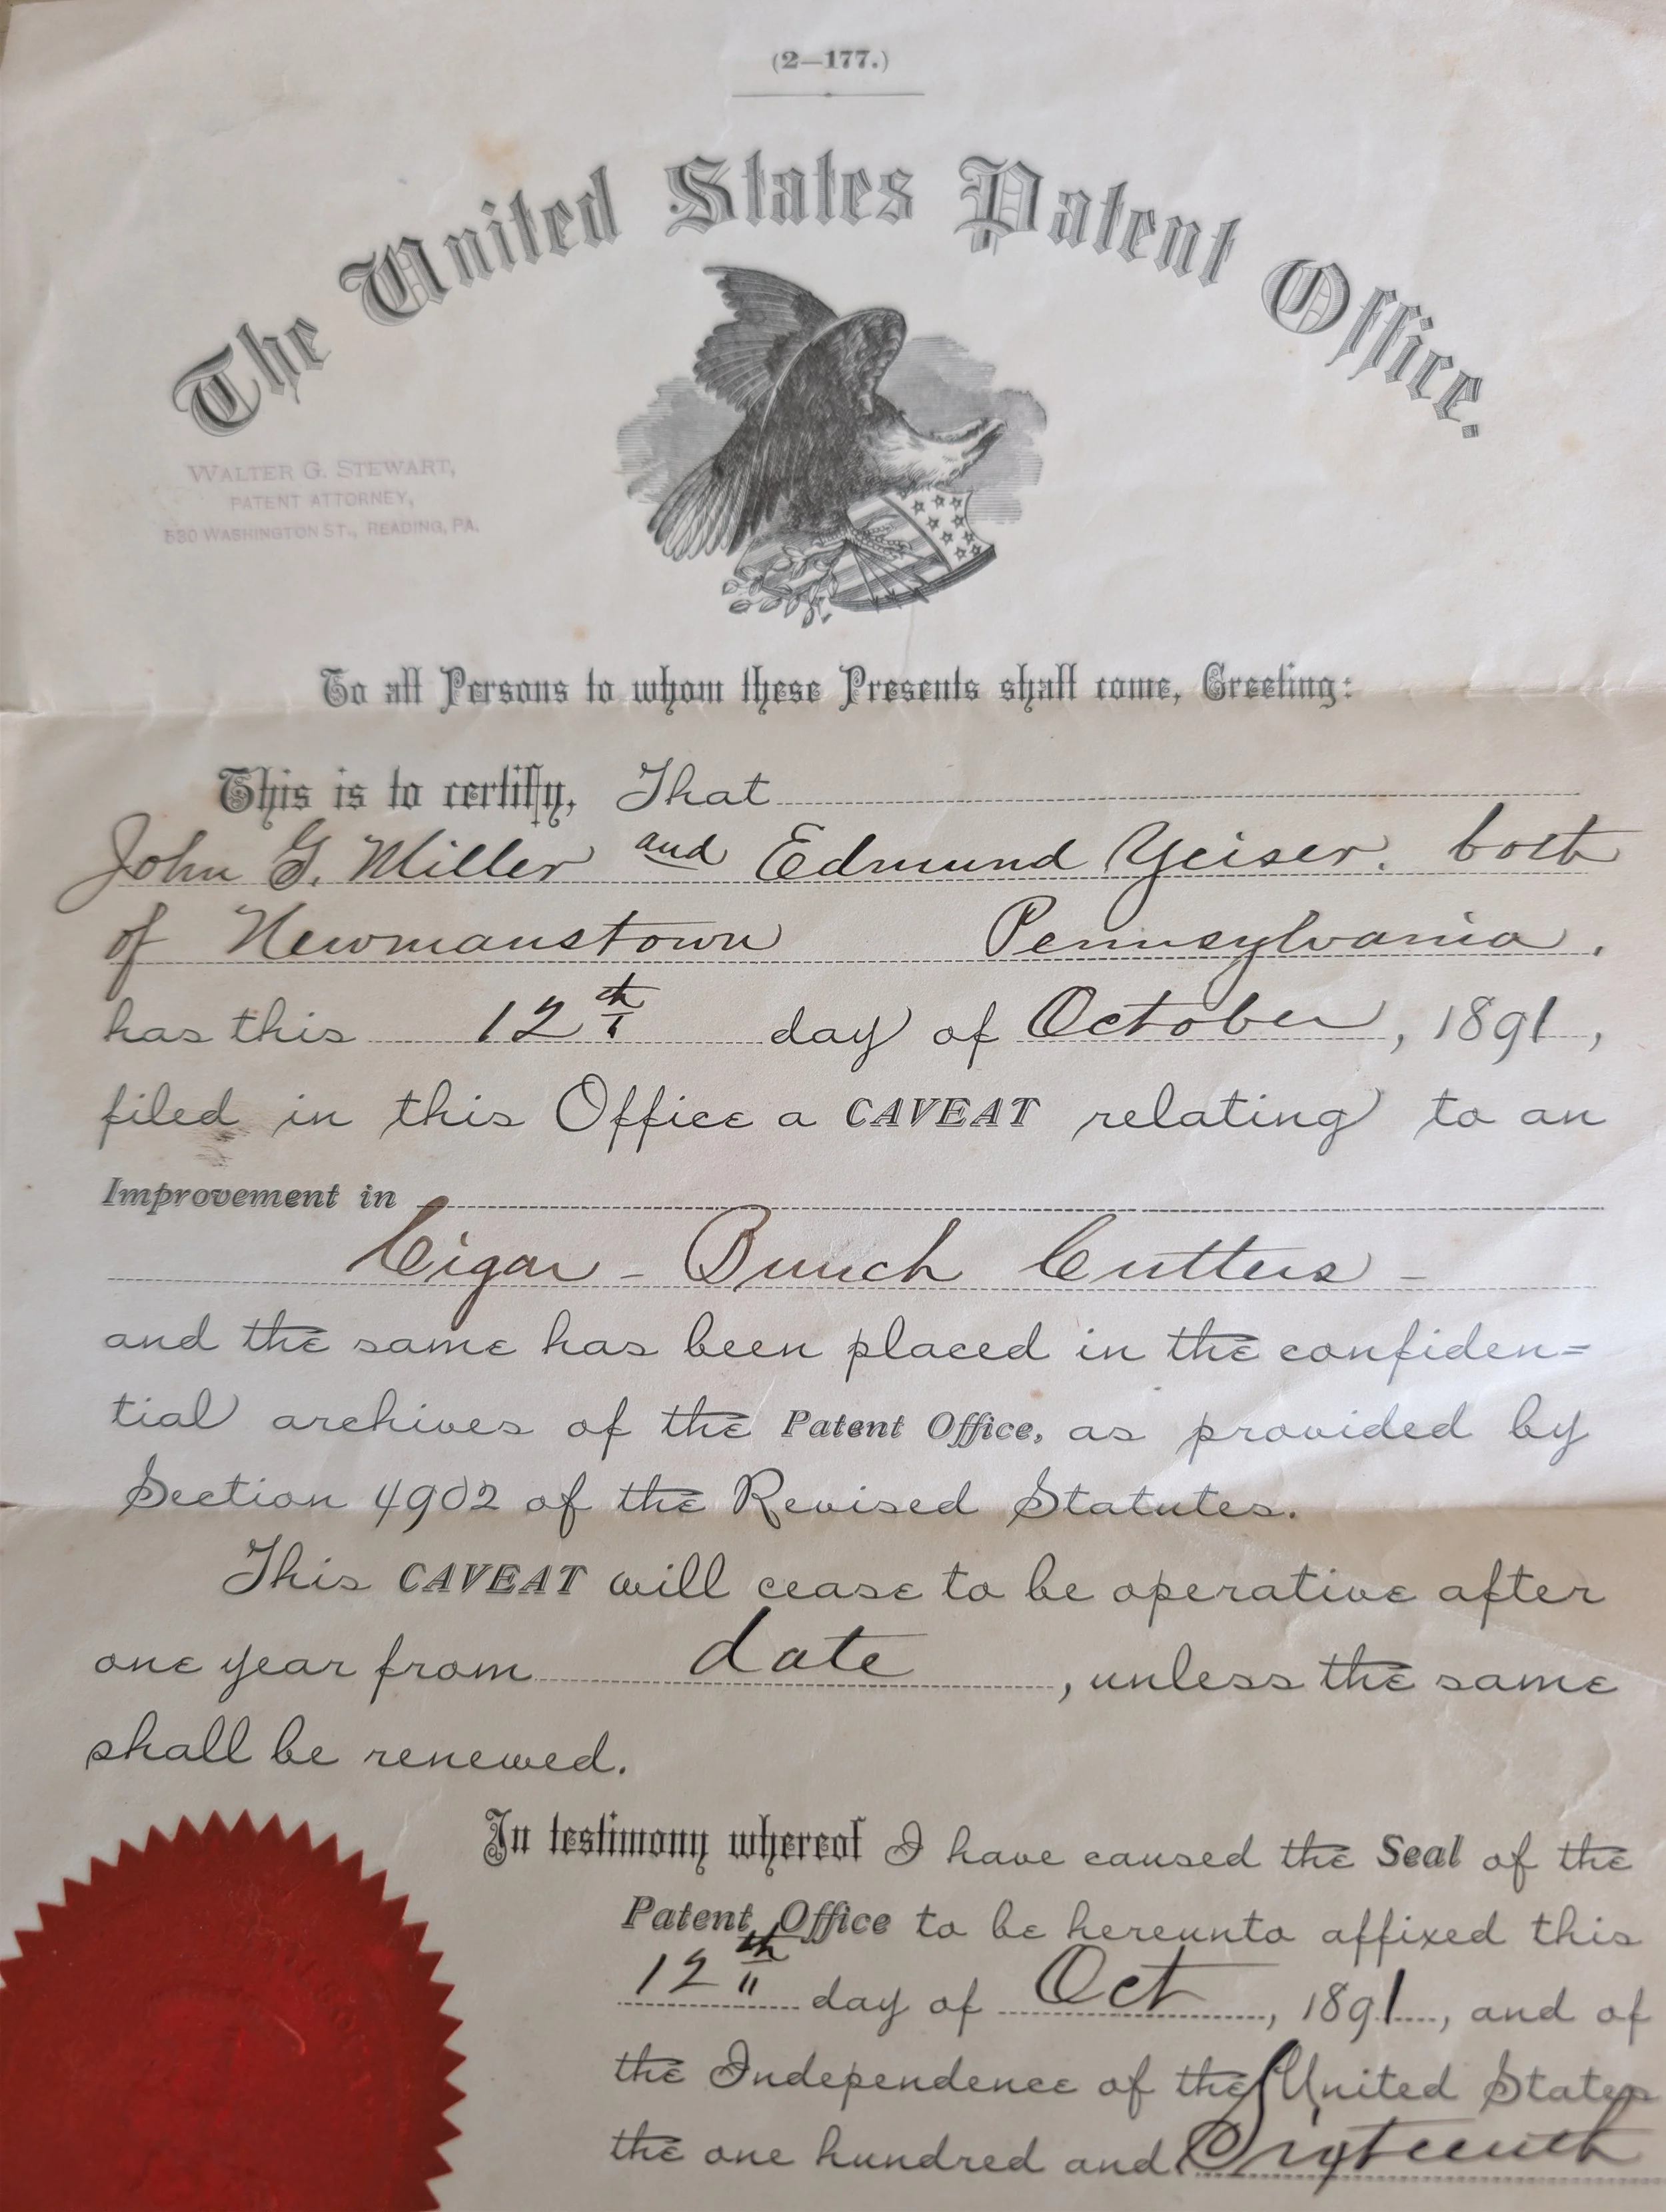 (2—177.)
The United States Patent Office.
WALTER G. STEWART,
PATENT ATTORNEY,
530 WASHINGTON ST., READING, PA.
To all Persons to whom these Presents shall come, Greeting:
This is to certify, That
John G. Miller and Edmund Yeiser. both
of Newmanstown Pennsylvania.
has this 12th day of October, 1891,
filed in this Office a CAVEAT relating to an
Improvement in
Cigar - Bunch Cutters -
and the same has been placed in the confiden=
tial archives of the Patent Office, as provided by
Section 4902 of the Revised Statutes.
This CAVEAT will cease to be operative after
one year from date, unless the same
shall be renewed.
In testimony whereof I have caused the Seal of the
Patent Office to be hereunto affixed this
12th day of Oct, 1891, and of
the Independence of the United States
the one hundred and Sixteenth